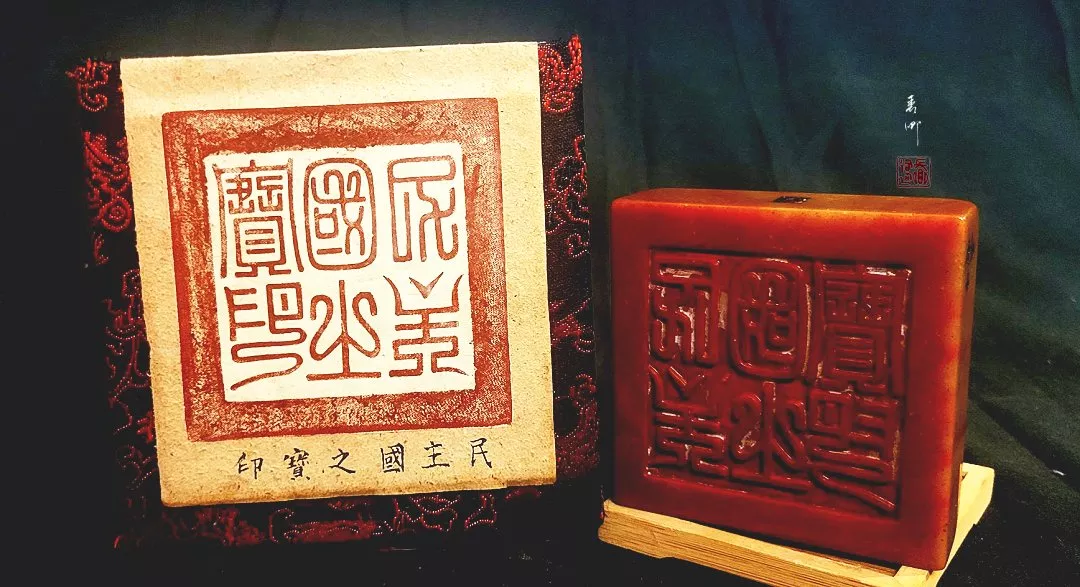 民主
國之
寶印
民主國之寶印
民主
國之
寶印